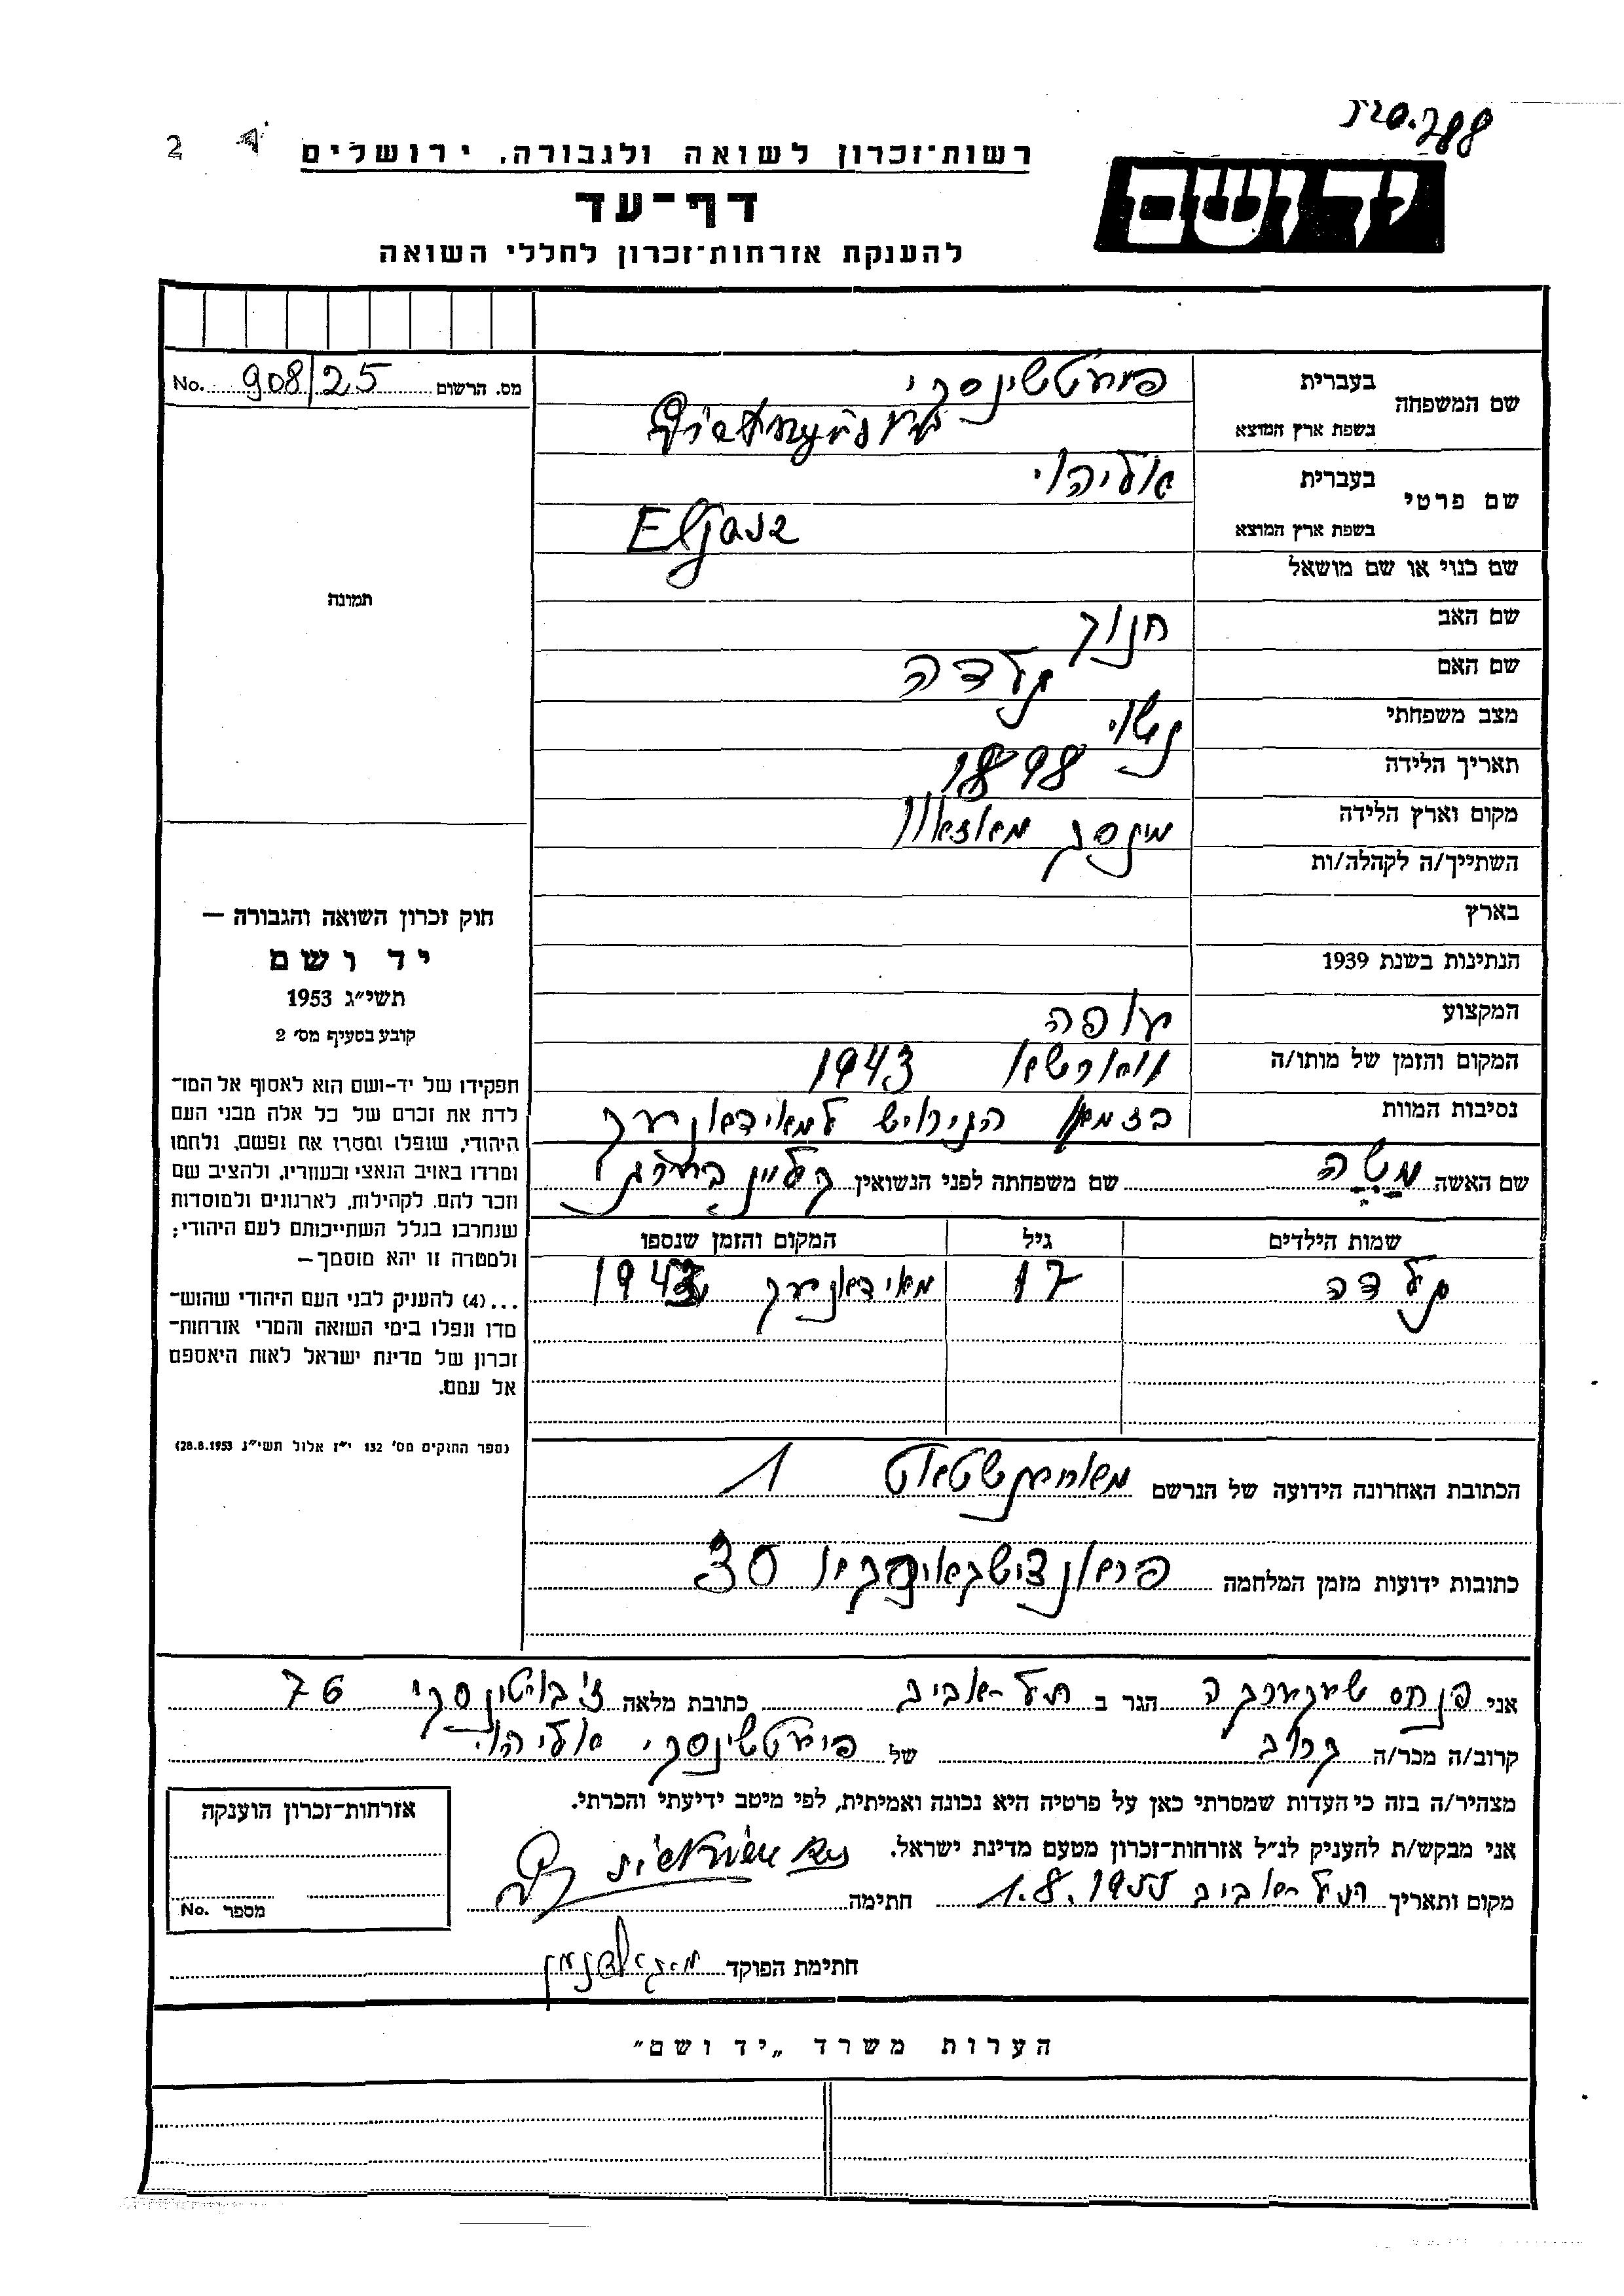 2
רשות־זכרון לשואה ולגבורה, ירושלים
דף־עד
להענקת אזרחות־זכרון לחללי השואה
יד ושם
No. 908/25 מס. הרשום
שם המשפחה
בעברית
בשפת ארץ המוצא
שם פרטי
בעברית אליהו
בשפת ארץ המוצא Eljasz
שם כנוי או שם מושאל
שם האב חנוך
שם האם
מצב משפחתי נשוי
תאריך הלידה 1898
מקום וארץ הלידה מינסק מאזאוו
השתייך/ה לקהלה/ות
בארץ
הנתינות בשנת 1939
המקצוע אופה
המקום והזמן של מותו/ה ווארשא 1943
נסיבות המוות בזמן הגירוש למאידאנעק
שם האשה משה שם משפחתה לפני הנשואין
שמות הילדים גיל המקום והזמן שנספו
17 מאידאנעק 1943
הכתובת האחרונה הידועה של הנרשם 1
כתובות ידועות מזמן המלחמה 30
תמונה
חוק זכרון השואה והגבורה —
יד ושם
תשי״ג 1953
קובע בסעיף מס׳ 2
תפקידו של יד-ושם הוא לאסוף אל המו־
לדת את זכרם של כל אלה מבני העם
היהודי, שנפלו ומסרו את נפשם, נלחמו
ומרדו באויב הנאצי ובעוזריו, ולהציב שם
וזכר להם, לקהילות, לארגונים ולמוסדות
שנחרבו בגלל השתייכותם לעם היהודי;
ולמטרה זו יהא מוסמך—
...(4) להעניק לבני העם היהודי שהוש־
מדו ונפלו בימי השואה והמרי אזרחות־
זכרון של מדינת ישראל לאות היאספם
אל עמם.
(ספר החוקים מס׳ 132 י״ז אלול תשי״ג 28.8.1953)
אני פנחס הגר ב תל-אביב כתובת מלאה ז׳בוטינסקי 76
קרוב/ה מכר/ה קרוב של אליהו
מצהיר/ה בזה כי העדות שמסרתי כאן על פרטיה היא נכונה ואמיתית, לפי מיטב ידיעתי והכרתי.
אני מבקש/ת להעניק לנ״ל אזרחות־זכרון מטעם מדינת ישראל.
מקום ותאריך תל-אביב 1.8.1955 חתימה
חתימת הפוקד
אזרחות־זכרון הוענקה
מספר No.
הערות משרד „יד ושם״